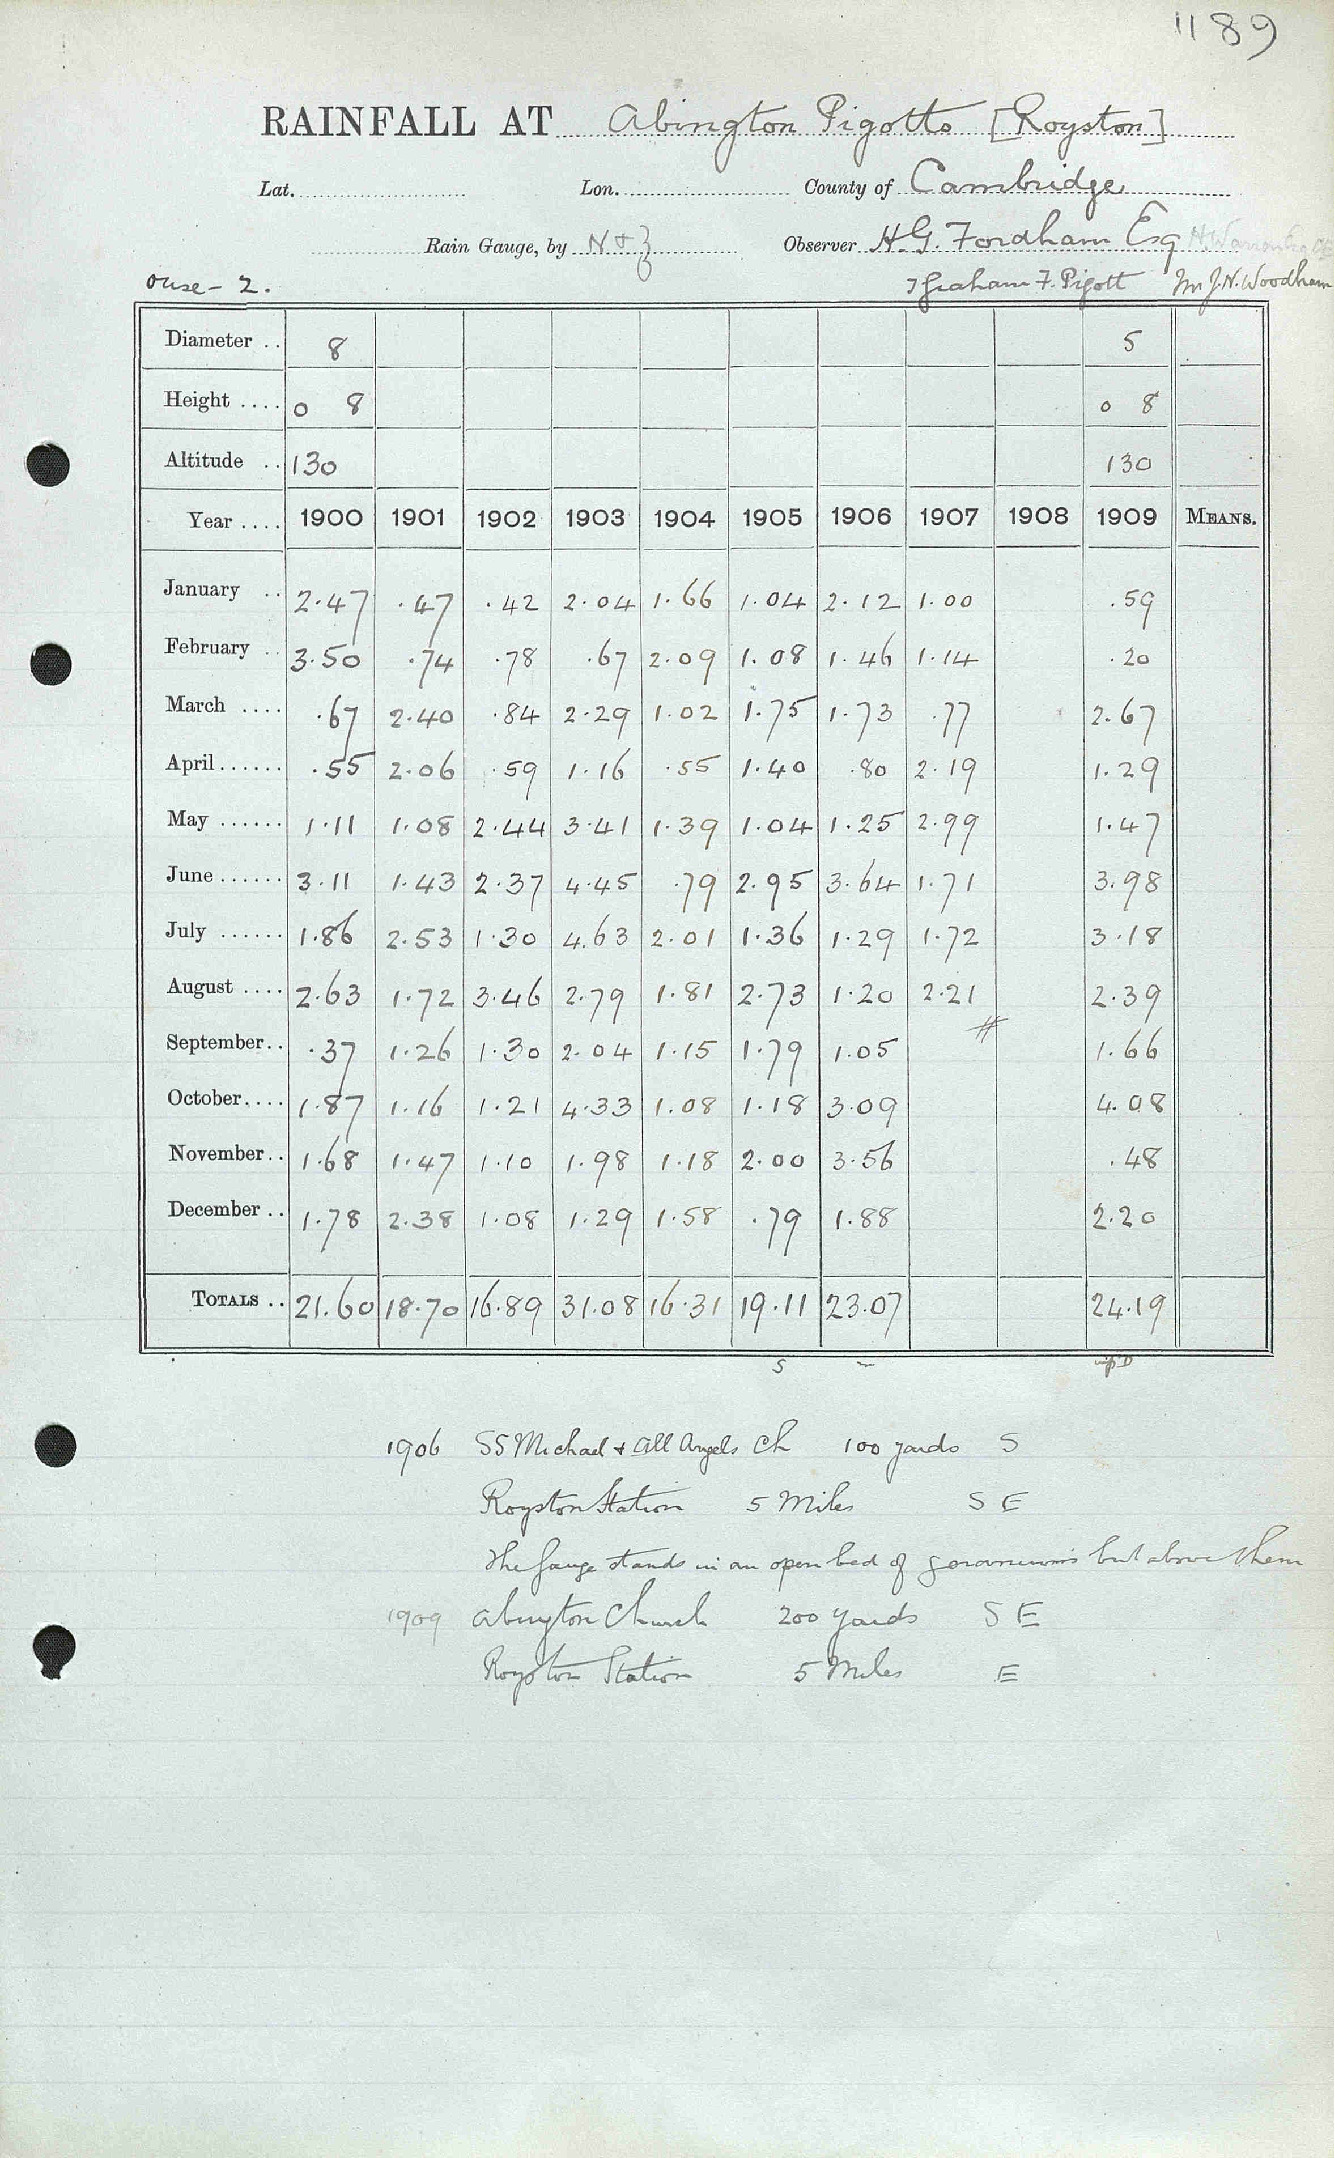 1189
RAINFALL AT Abington Pigotts [Royston]
Lat. Lon. County of Cambridge
Rain Gauge, by N & Z Observer H.G. Fordham Esq
Ouse - 2. Graham F. Pigott Mr J.N. Woodham
Diameter .. 8 5
Height .... 0 8 0 8
Altitude .. 130 130
Year .... 1900 1901 1902 1903 1904 1905 1906 1907 1908 1909 MEANS.
January .. 2.47 .47 .42 2.04 1.66 1.04 2.12 1.00 .59
February .. 3.50 .74 .78 .67 2.09 1.08 1.46 1.14 .20
March .... .67 2.40 .84 2.29 1.02 1.75 1.73 .77 2.67
April ...... .55 2.06 .59 1.16 .55 1.40 .80 2.19 1.29
May ...... 1.11 1.08 2.44 3.41 1.39 1.04 1.25 2.99 1.47
June ...... 3.11 1.43 2.37 4.45 .79 2.95 3.64 1.71 3.98
July ...... 1.86 2.53 1.30 4.63 2.01 1.36 1.29 1.72 3.18
August .... 2.63 1.72 3.46 2.79 1.81 2.73 1.20 2.21 2.39
September .. .37 1.26 1.30 2.04 1.15 1.79 1.05 # 1.66
October .... 1.87 1.16 1.21 4.33 1.08 1.18 3.09 4.08
November .. 1.68 1.47 1.10 1.98 1.18 2.00 3.56 .48
December .. 1.78 2.38 1.08 1.29 1.58 .79 1.88 2.20
TOTALS .. 21.60 18.70 16.89 31.08 16.31 19.11 23.07 24.19
S
1906 SS Michael & All Angels Ch 100 yards S
Royston Station 5 Miles S E
The Gauge stands in an open bed of geraniums but above them
1909 Abington Church 200 yards S E
Royston Station 5 Miles E